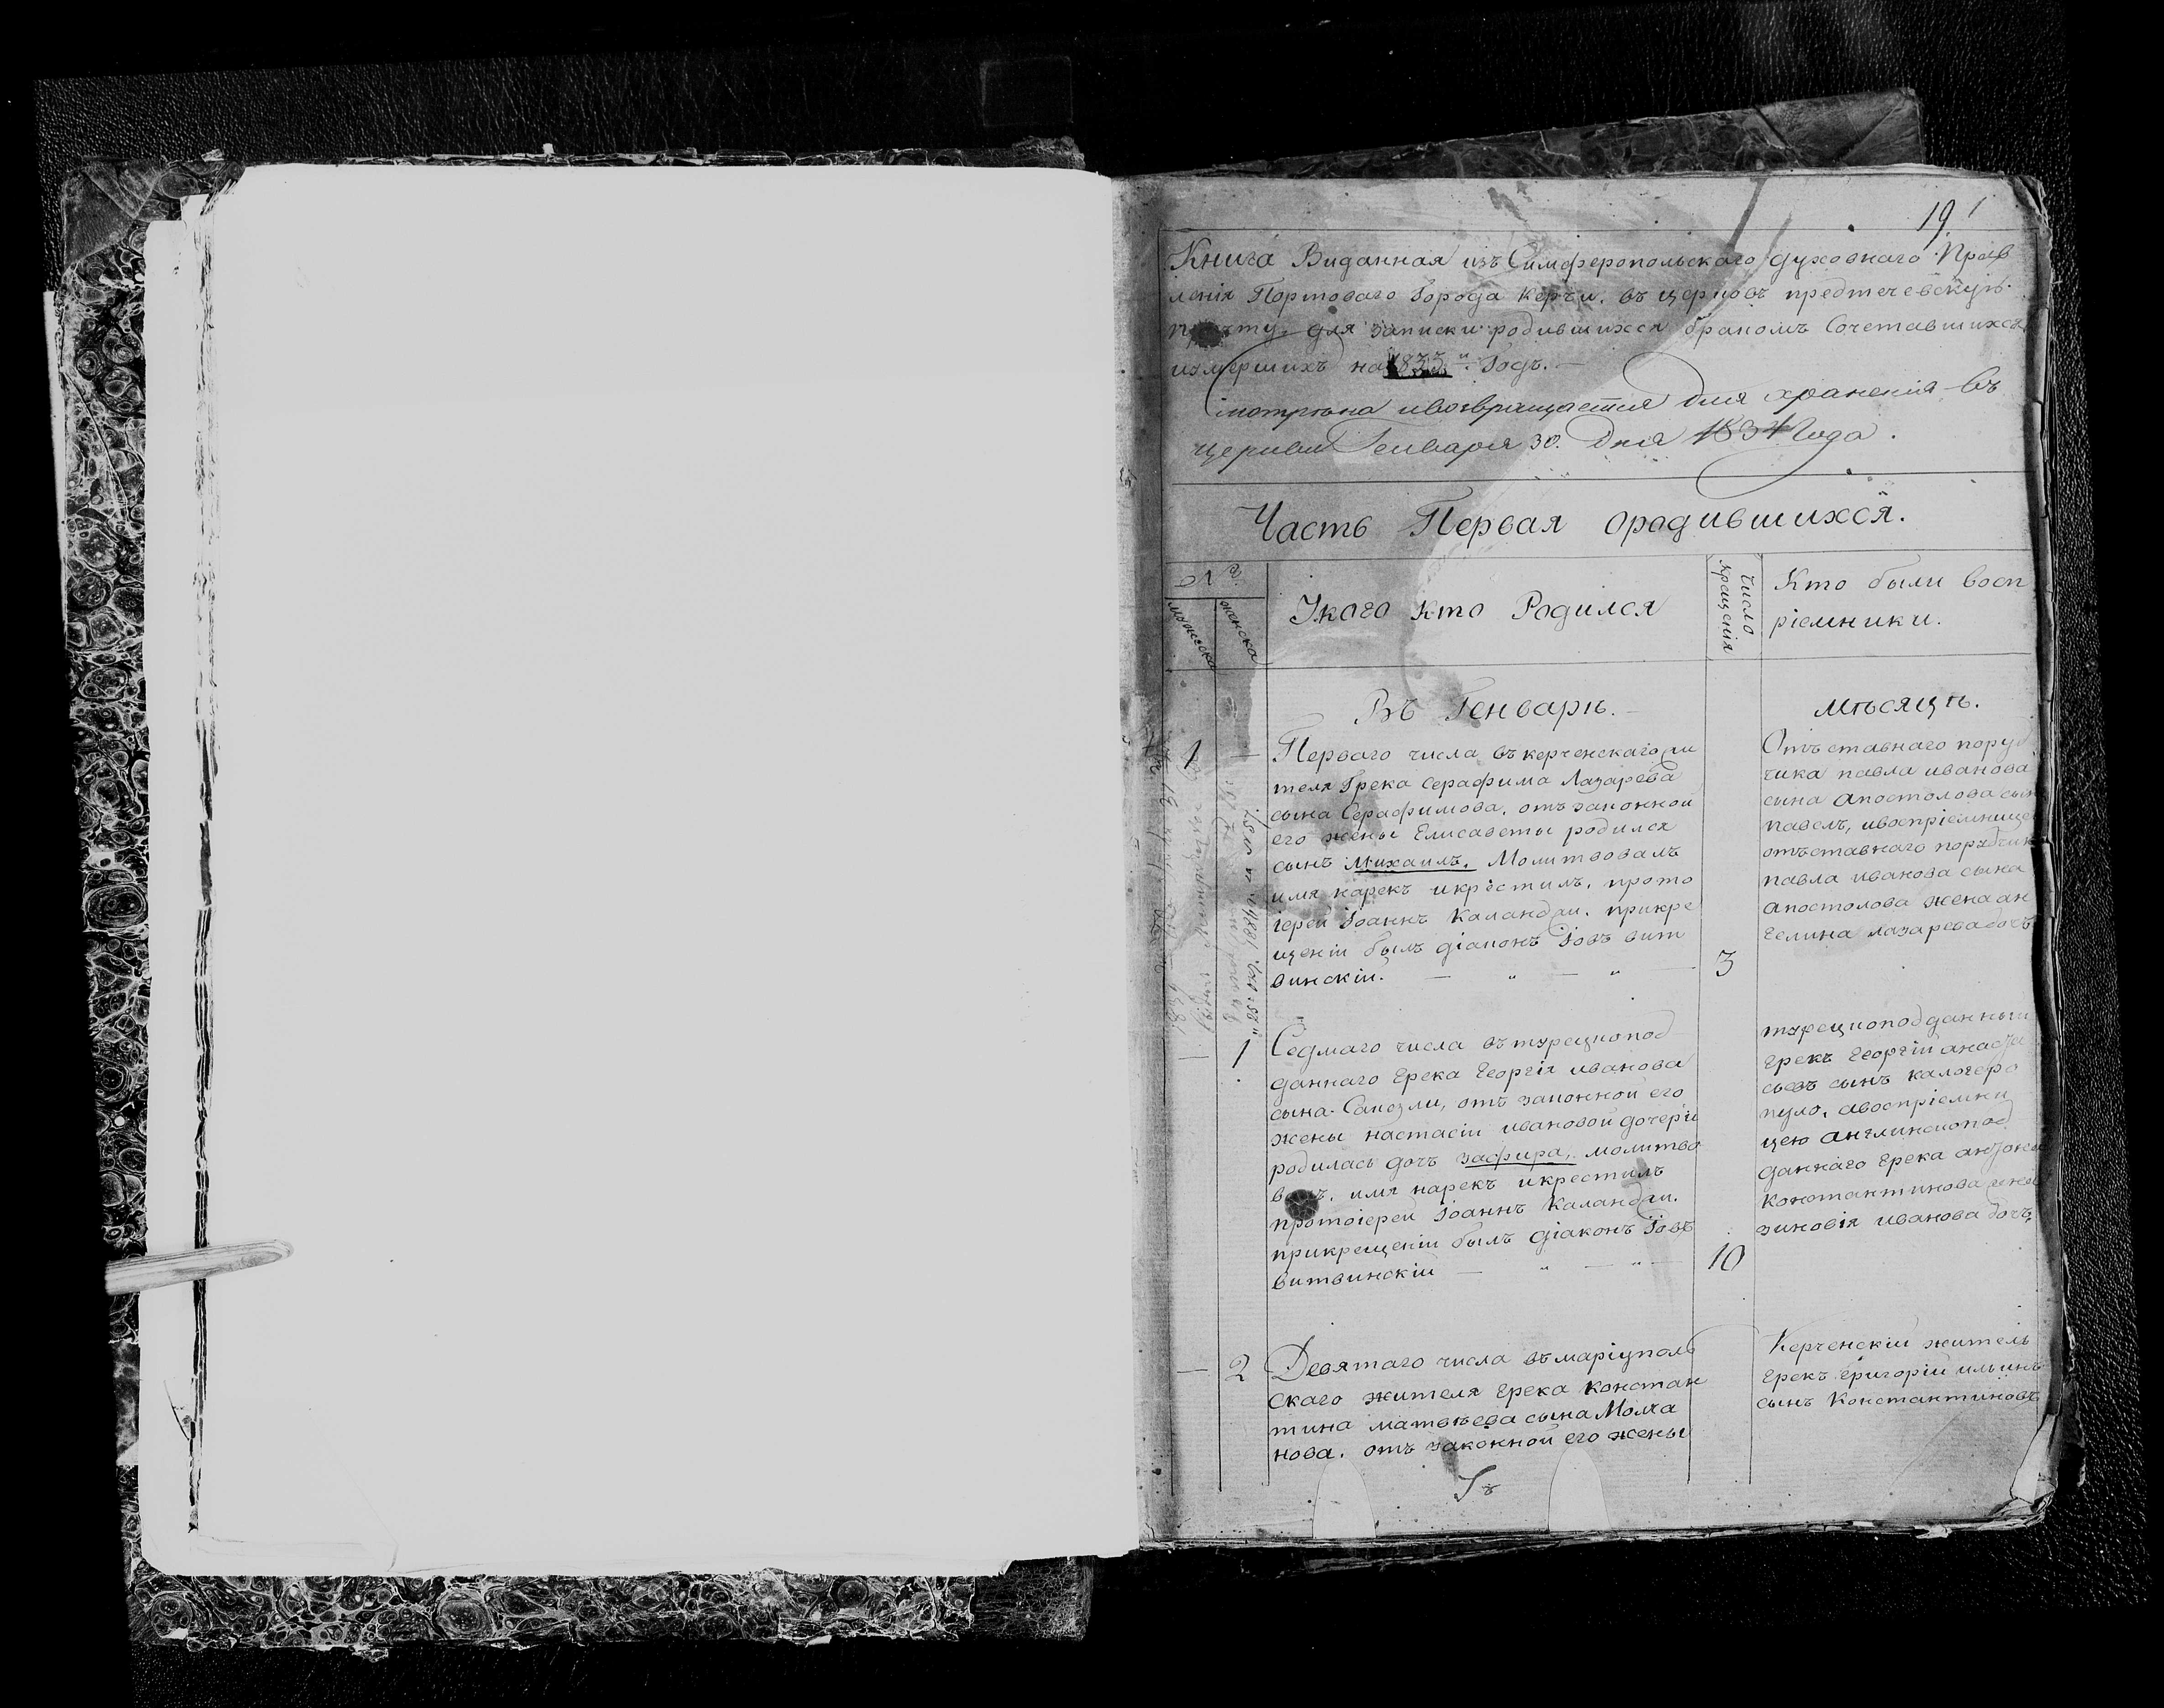 19 1
Книга Виданная изъ Симферопольскаго духовнаго Прав
ленія Портоваго Города Керчи. въ церковъ предтечевскую.
для записки родившихся бракомъ Сочетавшихся
иумершихъ на 1833й Годъ. —
смотрѣна ивозвращается для храненія въ
церкви Генваря 30. дня 1834 Года.
Часть Первая ородившихся.
№
мужеска
женска
Укого кто Родился
Число крещенія
Кто были восп
ріемники.
Въ Генварѣ. —
мѣсяцѣ.
1 —
Перваго числа въ керченскаго жи
теля Грека Серафима Лазарева
сына Серафимова, отъ законной
его жены Елисаветы родился
сынъ Михаилъ. Молитвовалъ
имя нарекъ икрестилъ. прото
іереи Іоаннъ Каландзи. прикре
щеніи былъ діаконъ Іовъ вит
винскіи. — " — " —
3
Отъставнаго пору
чика павла иванова
сына апостолова сын
павелъ, ивоспріемнице
отъставнаго поручик
павла иванова сына
апостолова жена ан
гелина лазарева дочъ
— 1
Седмаго числа въ турецкопод
даннаго грека Георгія иванова
сына отъ законной его
жены настасіи ивановой дочери
родиласъ дочъ зафира, молитво
имя нарекъ икрестилъ
протоіереи Іоаннъ Каландзи.
прикрещеніи былъ діаконъ Іовъ
витвинскіи — " — " —
10
турецкоподданныи
грекъ Георгіи анаста
сьевъ сынъ калогеро
пуло, авоспріемни
цею англинскопод
даннаго грека антона
константинова жена
зиновія иванова дочъ.
— 2
Девятаго числа въ маріуполь
скаго жителя грека констан
тина матвѣева сына Молча
нова. отъ законной его жены
Керченскіи житель
грекъ григоріи ильинъ
сынъ Константиновъ